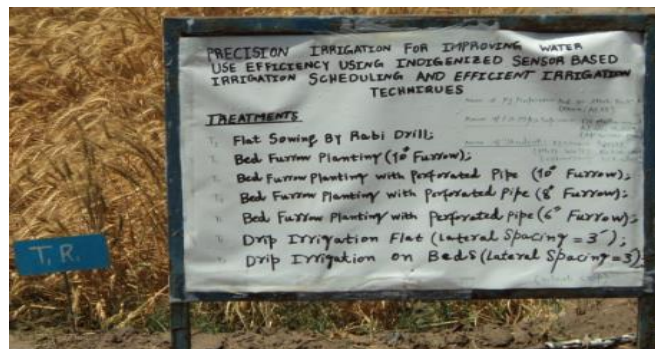 PRECISION IRRIGATION FOR IMPROVING WATER
USE EFFICIENCY USING INDIGENIZED SENSOR BASED
IRRIGATION SCHEDULING AND EFFICIENT IRRIGATION
TECHNIQUES
TREATMENTS
Flat Sowing By Rabi Drill;
Bed Furrow Planting (10" Furrow);
Bed Furrow Planting with Perforated Pipe (10" Furrow);
Bed Furrow Planting with Perforated Pipe (8" Furrow);
Bed Furrow Planting with Perforated Pipe (6" Furrow);
Drip Irrigation Flat (Lateral Spacing = 3');
Drip Irrigation on Beds (Lateral Spacing = 3')
T.R.